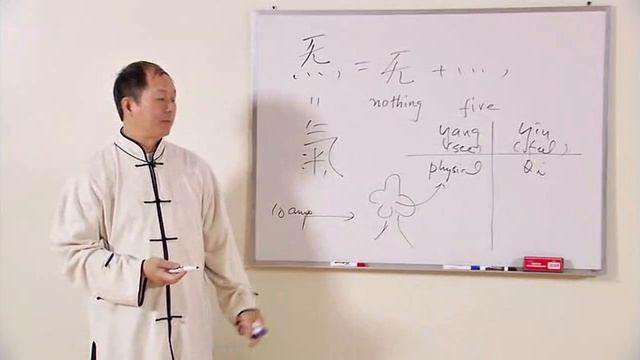 炁 = 旡 + 灬
nothing fire
॥
yang yin
(see) (feel)
氣
physical Qi
10 amp